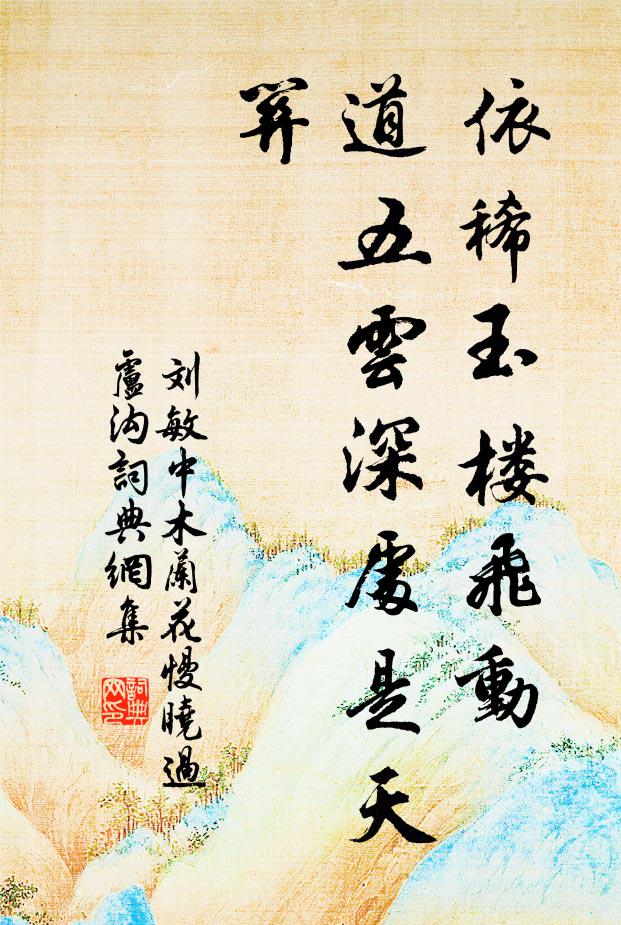 依稀玉楼飛動
道五雲深處是天
關
刘敏中木蘭花慢曉過
盧沟詞典網集
詞典
网印